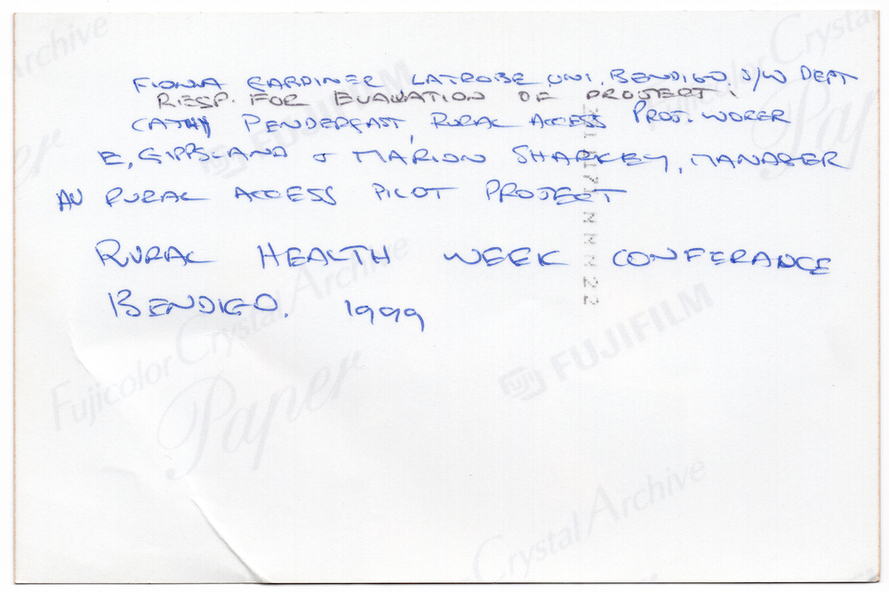 FIONA GARDINER LATROBE UNI. BENDIGO. S/W DEPT
RESP. FOR EVALUATION OF PROJECT.
CATHY PENDERFAST, RURAL ACCESS PROJ. WORER
E. GIPPSLAND & MARION SHARKEY, MANAGER
RURAL ACCESS PILOT PROJECT
RURAL HEALTH WEEK CONFERANCE
BENDIGO. 1999
Fujicolor Crystal Archive
Paper
FUJIFILM
Crystal Archive